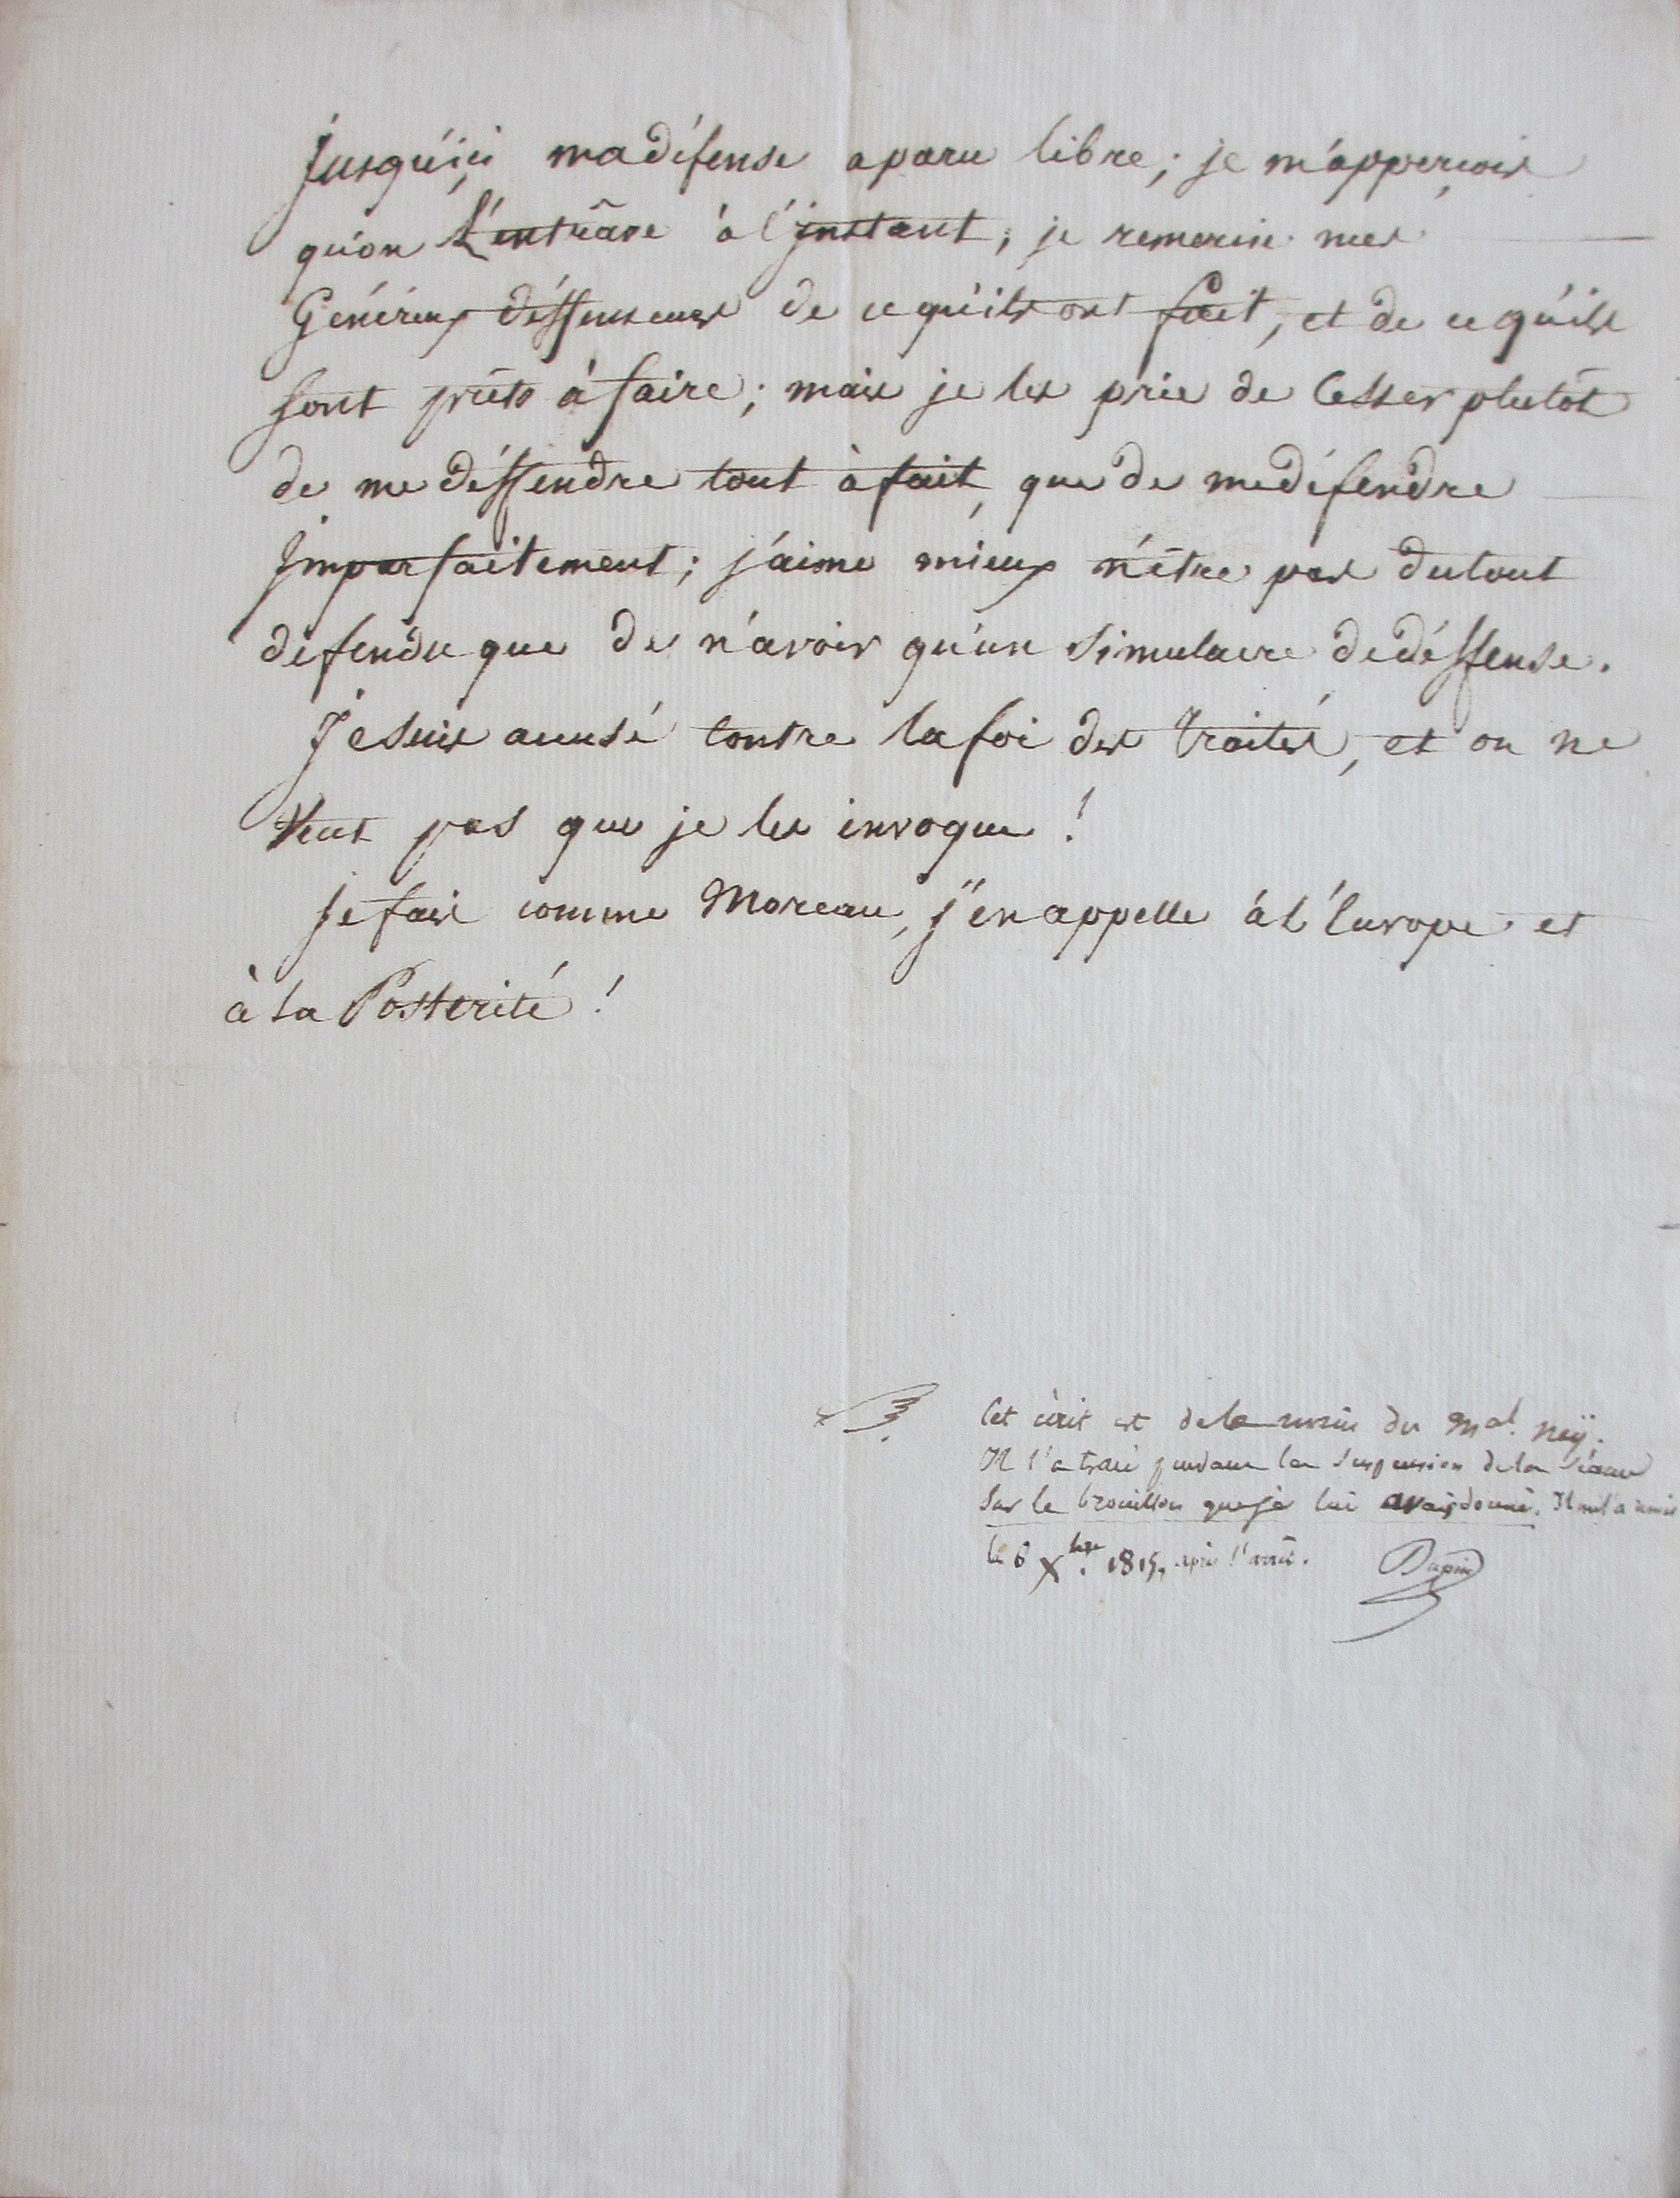 Jusqu'içi ma défense a paru libre; je m'apperçois
qu'on L'entrâve à l'jnstant; je remercie mes
Généreux déffenseurs de ce qu'ils ont fait, et de ce qu'ils
sont prêts à faire; mais je les prie de Cesser plutôt
de me déffendre tout à fait, que de me défendre
Jmparfaitement; j'aime mieux n'être pas du tout
défendu que de n'avoir qu'un simulacre de déffense.
Je suis accusé Contre la foi des Traités, et on ne
Veut pas que je les invoque!
Je fais comme Moreau, j'en appelle à l'Europe et
à la Postérité!
Cet écrit est de la main du Mal. Ney;
Il l'a tracé pendant la suspension de la séance
sur le brouillon que je lui avais donné. Il me l'a remis
le 6 Xbre. 1815, après l'arrêt. Dupin